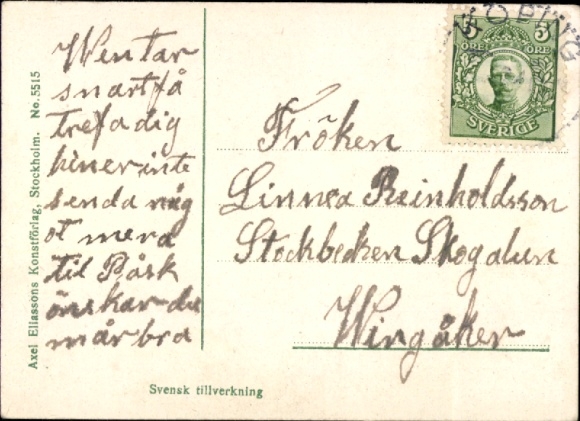 Wentar
snart få
trefa dig
hiner inte
senda någ
ot mera
til Påsk
önskar du
mår bra
Axel Eliassons Konstförlag, Stockholm. No. 5515
Svensk tillverkning
5 5
ÖRE ÖRE
SVERIGE
KÖPING
Fröken
Linnea Reinholdsson
Stockbecken Skogalun
Wingåker